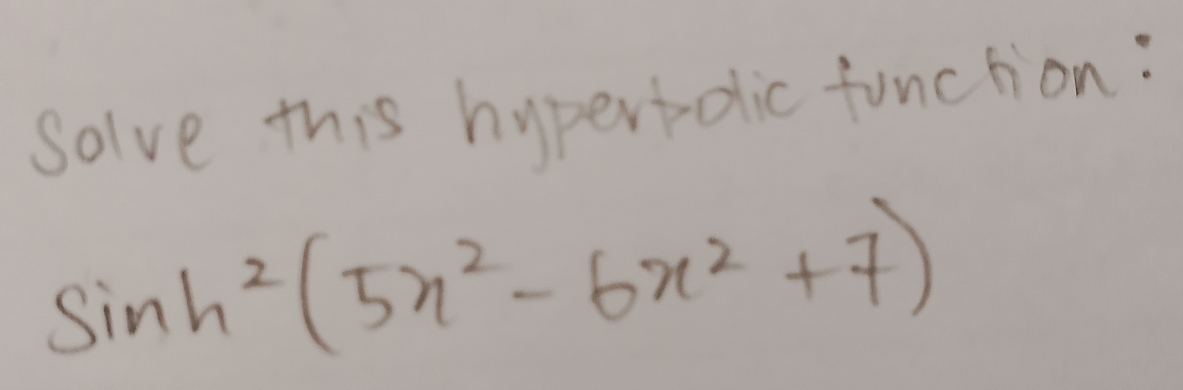 Solve this hyperbolic function:
Sinh²(5x² - 6x² + 7)